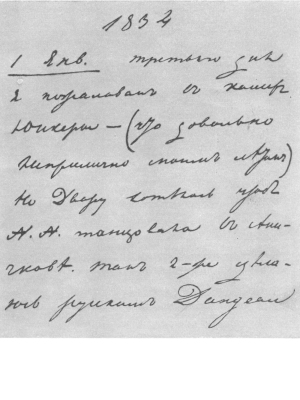 1834
1 Янв. третьего дня
я пожалован в камер
юнкеры — (что довольно
неприлично моим летам)
Но Двору хотелось чтоб
N. N. танцовала в Ани-
чкове. так я-же сдела-
юсь русским Dangeau